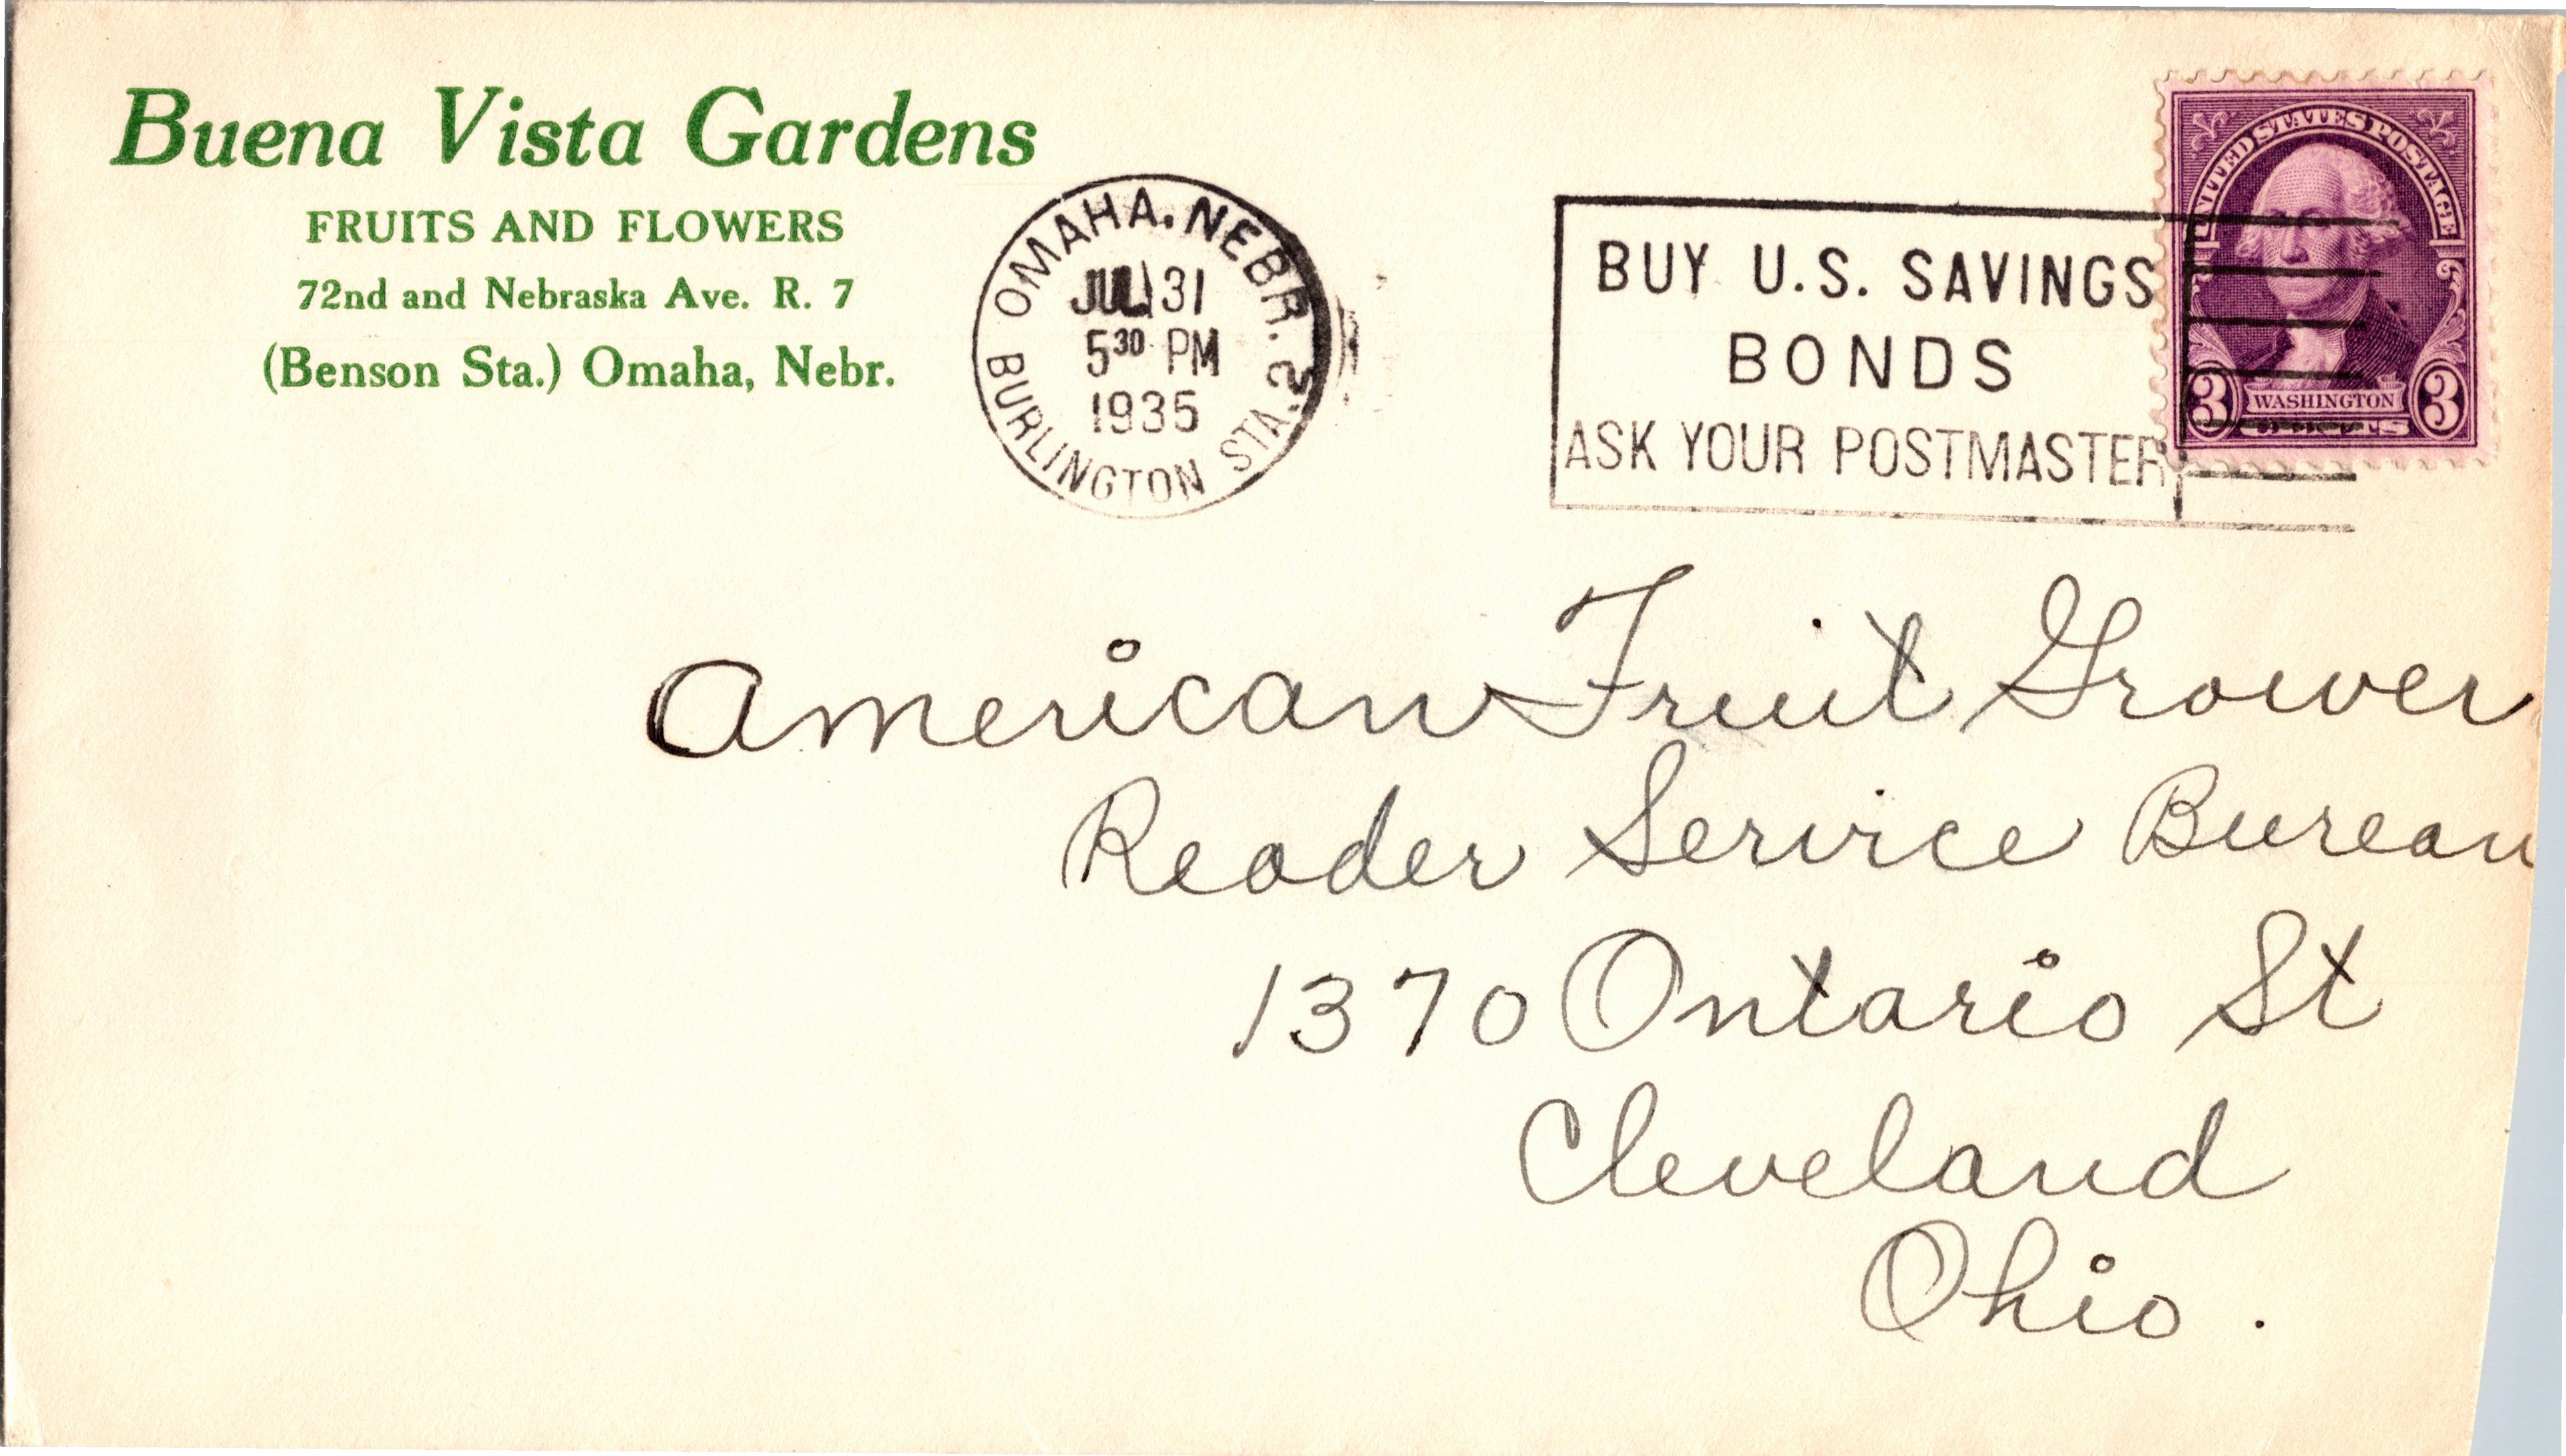 Buena Vista Gardens
FRUITS AND FLOWERS
72nd and Nebraska Ave. R. 7
(Benson Sta.) Omaha, Nebr.
OMAHA, NEBR. 2
BURLINGTON STA.
JUL 31
5 30 PM
1935
BUY U.S. SAVINGS
BONDS
ASK YOUR POSTMASTER
UNITED STATES POSTAGE
3 WASHINGTON 3
American Fruit Grower
Reader Service Bureau
1370 Ontario St
Cleveland
Ohio.